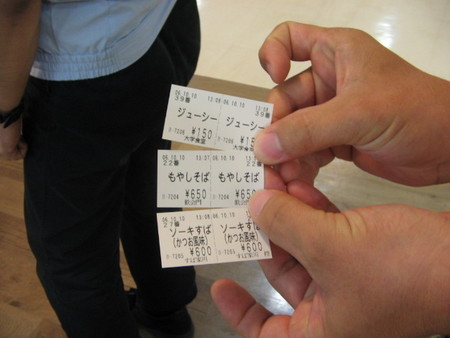 06.10.10 13:08 06.10.10 13:08
39番 39番
ジューシー ジューシー
¥150
大学食堂
06.10.10 13:07 06.10.10
22番 22番
もやしそば もやしそば
¥650 ¥650
06.10.10 13:08 06.10.10
27番
ソーキすば ソーキすば
(かつお風味) (かつお風味)
¥600 ¥600